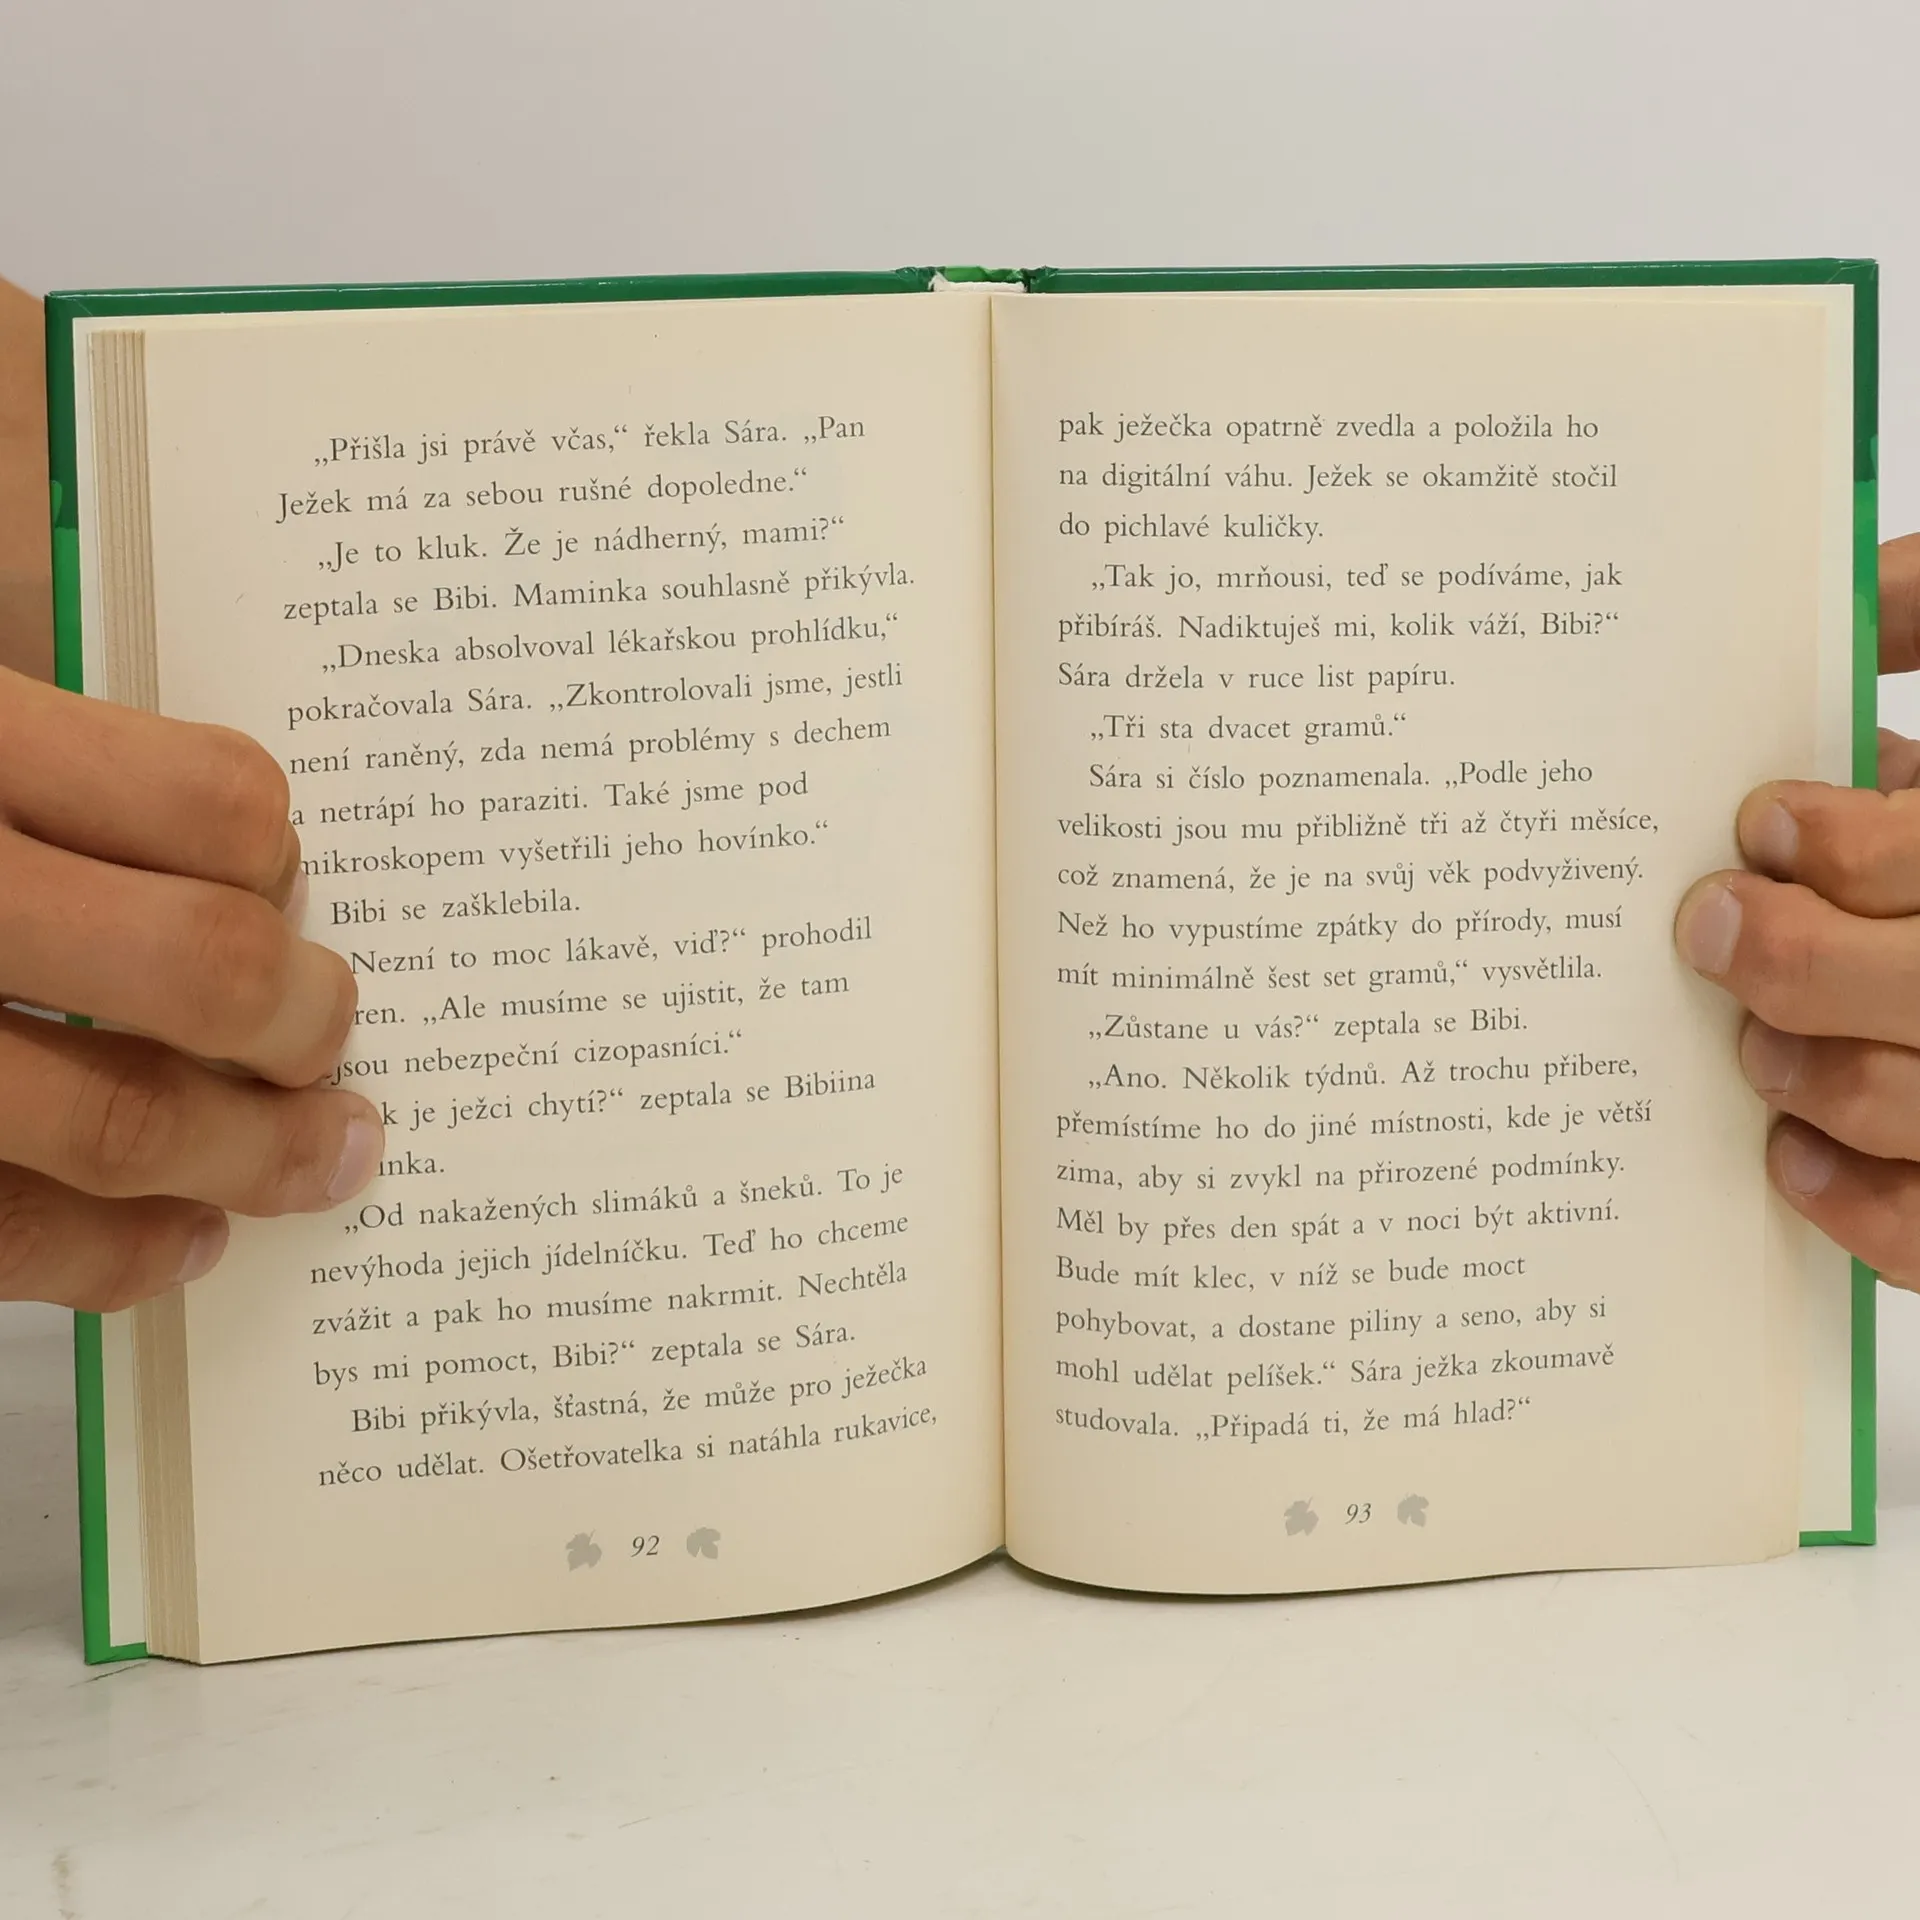 „Přišla jsi právě včas,“ řekla Sára. „Pan
Ježek má za sebou rušné dopoledne.“
„Je to kluk. Že je nádherný, mami?“
zeptala se Bibi. Maminka souhlasně přikývla.
„Dneska absolvoval lékařskou prohlídku,“
pokračovala Sára. „Zkontrolovali jsme, jestli
není raněný, zda nemá problémy s dechem
a netrápí ho paraziti. Také jsme pod
mikroskopem vyšetřili jeho hovínko.“
Bibi se zašklebila.
Nezní to moc lákavě, viď?“ prohodil
„Ale musíme se ujistit, že tam
nebezpeční cizopasníci.“
je ježci chytí?“ zeptala se Bibiina
„Od nakažených slimáků a šneků. To je
nevýhoda jejich jídelníčku. Teď ho chceme
zvážit a pak ho musíme nakrmit. Nechtěla
bys mi pomoct, Bibi?“ zeptala se Sára.
Bibi přikývla, šťastná, že může pro ježečka
něco udělat. Ošetřovatelka si natáhla rukavice,
92
pak ježečka opatrně zvedla a položila ho
na digitální váhu. Ježek se okamžitě stočil
do pichlavé kuličky.
„Tak jo, mrňousi, teď se podíváme, jak
přibíráš. Nadiktuješ mi, kolik váží, Bibi?“
Sára držela v ruce list papíru.
„Tři sta dvacet gramů.“
Sára si číslo poznamenala. „Podle jeho
velikosti jsou mu přibližně tři až čtyři měsíce,
což znamená, že je na svůj věk podvyživený.
Než ho vypustíme zpátky do přírody, musí
mít minimálně šest set gramů,“ vysvětlila.
„Zůstane u vás?“ zeptala se Bibi.
„Ano. Několik týdnů. Až trochu přibere,
přemístíme ho do jiné místnosti, kde je větší
zima, aby si zvykl na přirozené podmínky.
Měl by přes den spát a v noci být aktivní.
Bude mít klec, v níž se bude moct
pohybovat, a dostane piliny a seno, aby si
mohl udělat pelíšek.“ Sára ježka zkoumavě
studovala. „Připadá ti, že má hlad?“
93